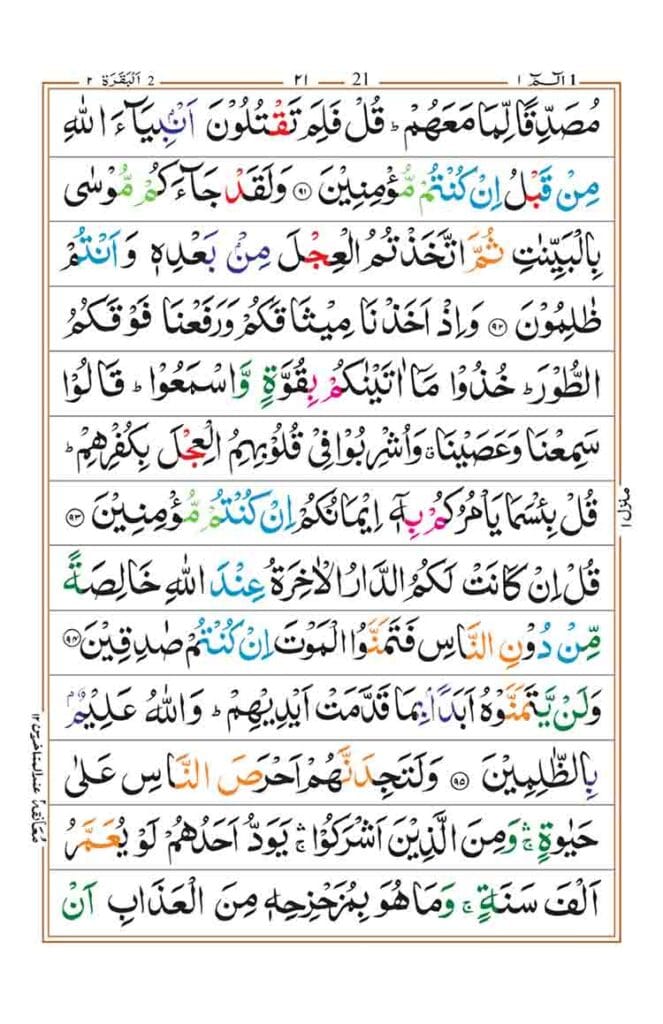 1 الٓمّٓ ١ 21 ٢١ 2 اَلْبَقَرَة ٢
مُصَدِّقًا لِّمَا مَعَهُمْ ؕ قُلْ فَلِمَ تَقْتُلُوْنَ اَنْۢبِيَآءَ اللّٰهِ
مِنْ قَبْلُ اِنْ كُنْتُمْ مُّؤْمِنِيْنَ ۝۹۱ وَلَقَدْ جَآءَكُمْ مُّوْسٰى
بِالْبَيِّنٰتِ ثُمَّ اتَّخَذْتُمُ الْعِجْلَ مِنْۢ بَعْدِهٖ وَاَنْتُمْ
ظٰلِمُوْنَ ۝۹۲ وَاِذْ اَخَذْنَا مِيْثَاقَكُمْ وَرَفَعْنَا فَوْقَكُمُ
الطُّوْرَ ؕ خُذُوْا مَاۤ اٰتَيْنٰكُمْ بِقُوَّةٍ وَّاسْمَعُوْا ؕ قَالُوْا
سَمِعْنَا وَعَصَيْنَا ۗ وَاُشْرِبُوْا فِيْ قُلُوْبِهِمُ الْعِجْلَ بِكُفْرِهِمْ ؕ
قُلْ بِئْسَمَا يَاْمُرُكُمْ بِهٖۤ اِيْمَانُكُمْ اِنْ كُنْتُمْ مُّؤْمِنِيْنَ ۝۹۳
قُلْ اِنْ كَانَتْ لَكُمُ الدَّارُ الْاٰخِرَةُ عِنْدَ اللّٰهِ خَالِصَةً
مِّنْ دُوْنِ النَّاسِ فَتَمَنَّوُا الْمَوْتَ اِنْ كُنْتُمْ صٰدِقِيْنَ ۝۹۴
وَلَنْ يَّتَمَنَّوْهُ اَبَدًۢا بِمَا قَدَّمَتْ اَيْدِيْهِمْ ؕ وَاللّٰهُ عَلِيْمٌۢ
بِالظّٰلِمِيْنَ ۝۹۵ وَلَتَجِدَنَّهُمْ اَحْرَصَ النَّاسِ عَلٰى
حَيٰوةٍ ۛۚ وَمِنَ الَّذِيْنَ اَشْرَكُوْا ۛۚ يَوَدُّ اَحَدُهُمْ لَوْ يُعَمَّرُ
اَلْفَ سَنَةٍ ۚ وَمَا هُوَ بِمُزَحْزِحِهٖ مِنَ الْعَذَابِ اَنْ
منزل ١
معانقة ٢ عند المتاخرين ١٢